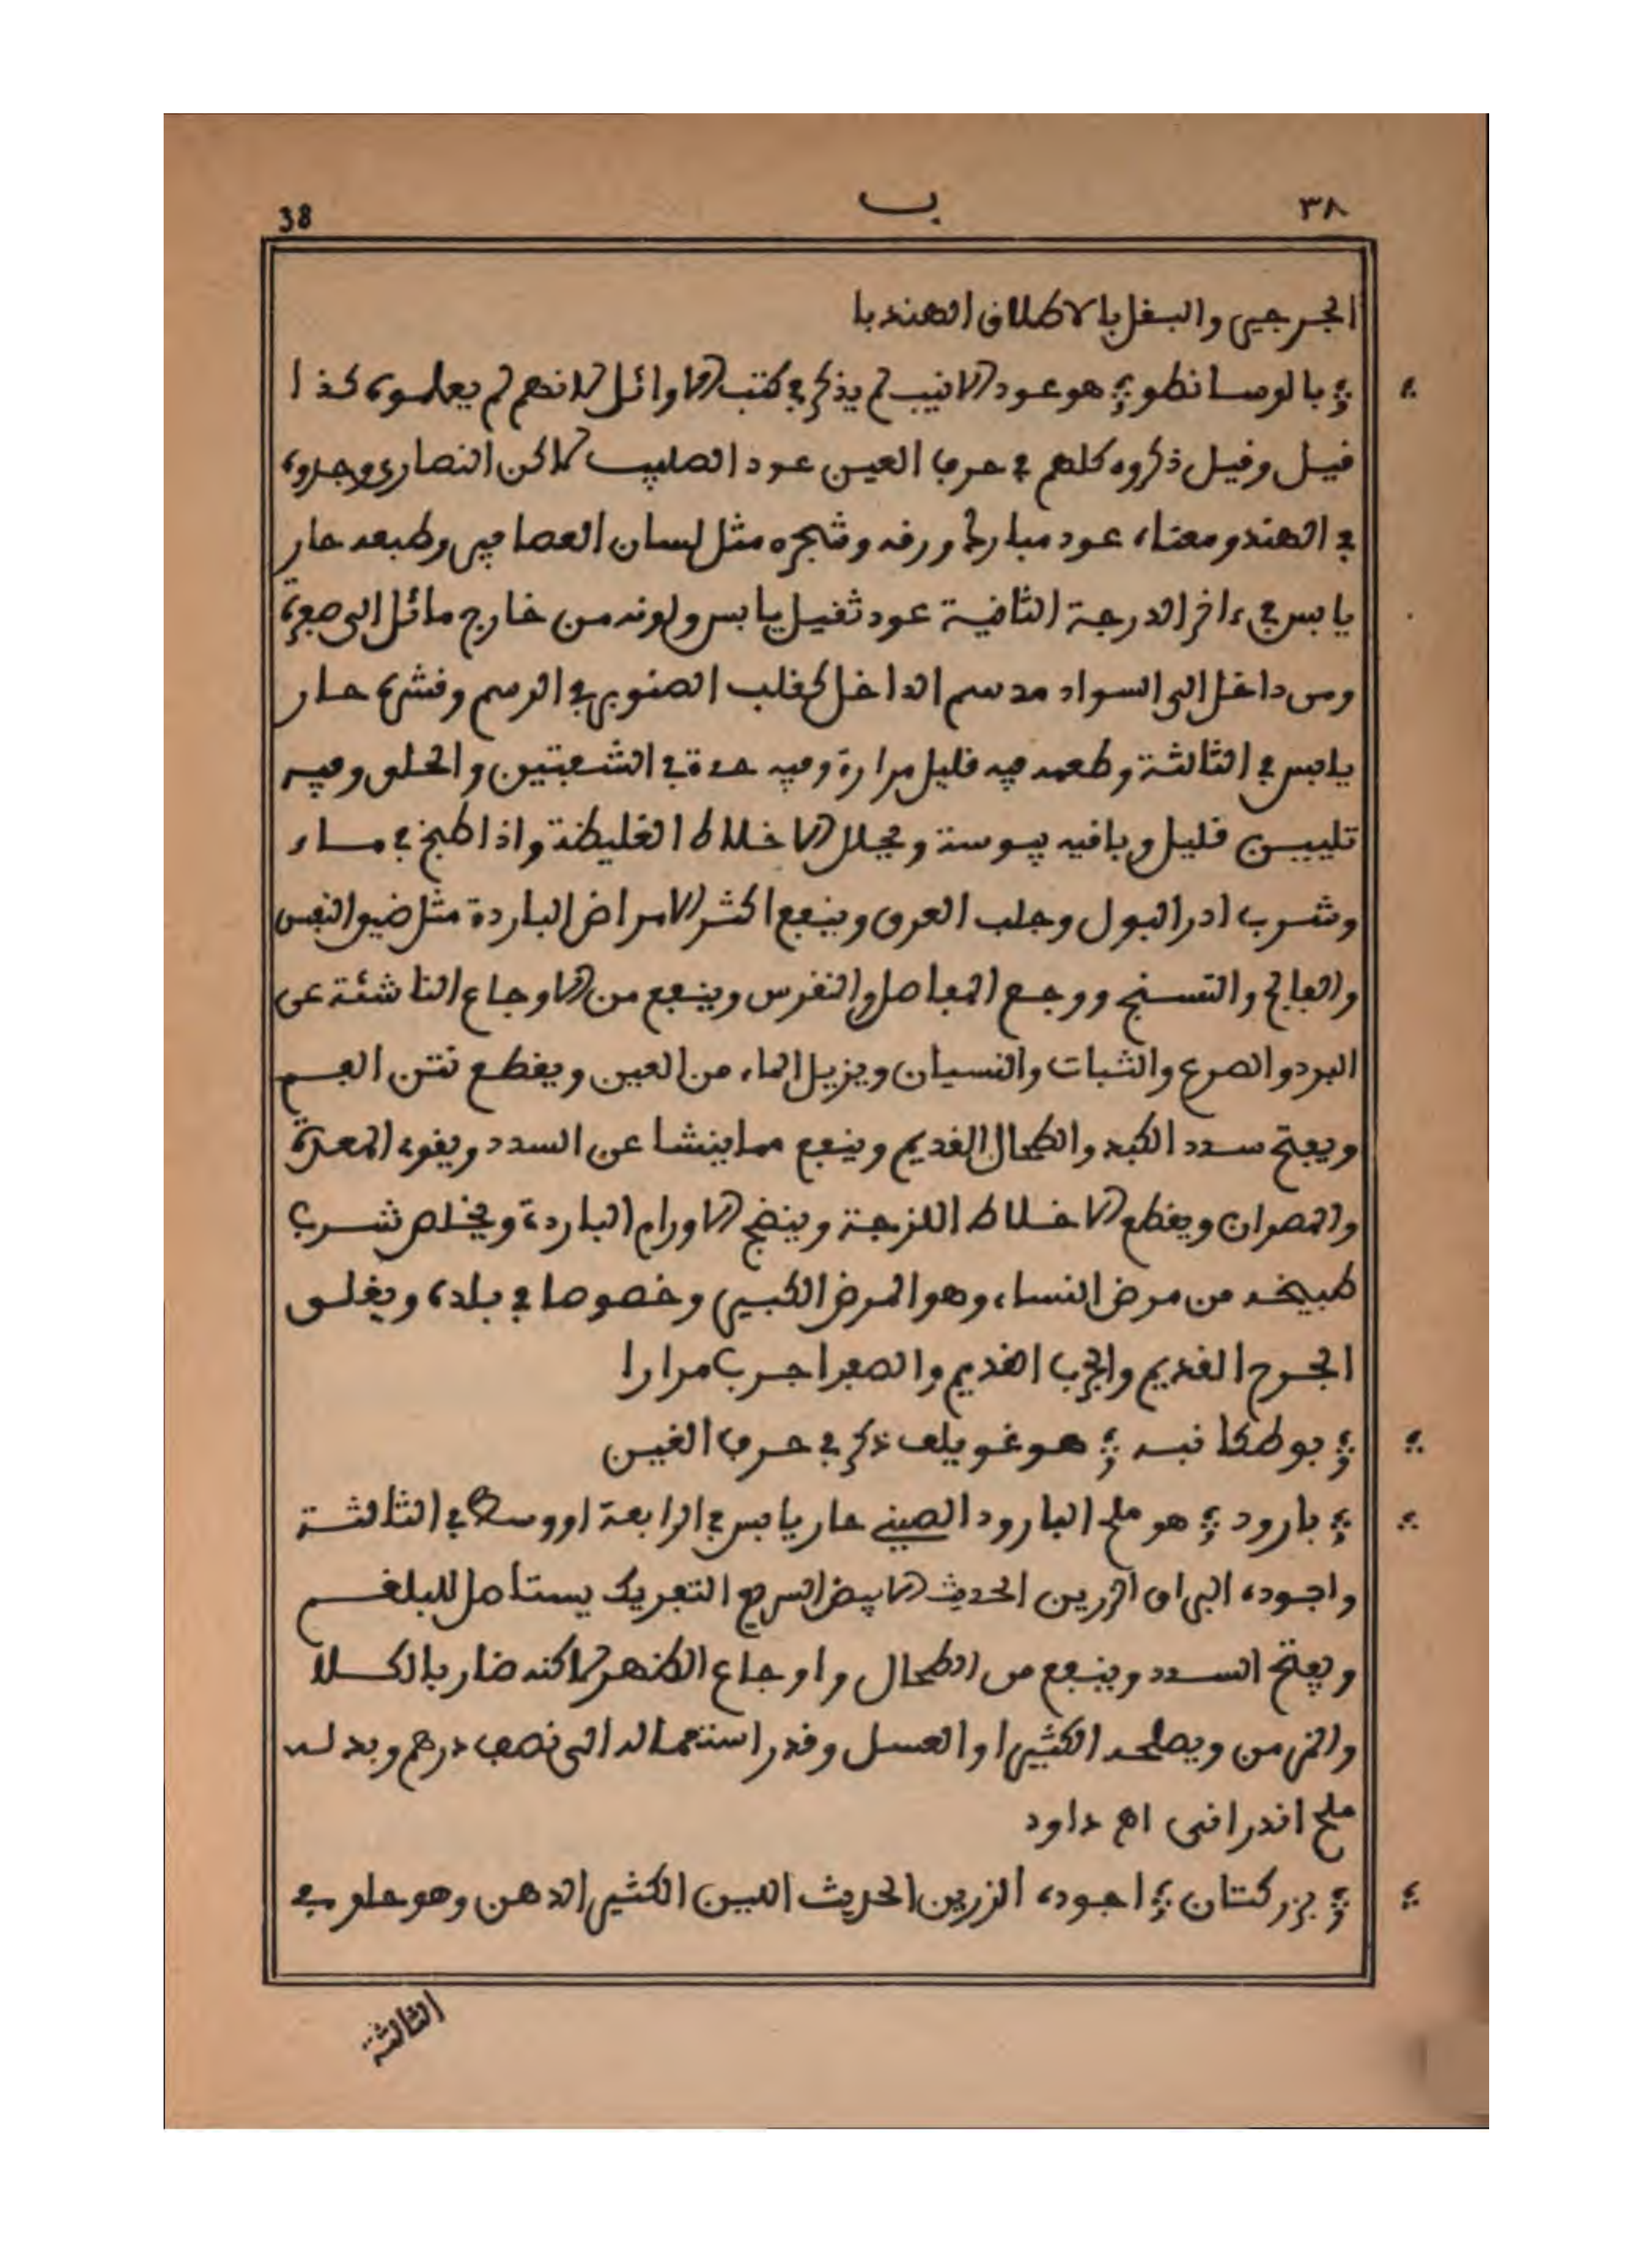 ٣٨ ب 38
الجرجير والبقل بالاطلاق الهندبا
بالوسانطو هو عود الانيب لم يذكر في كتب الاوائل لانهم لم يعلموه كذا
قيل وقيل ذكروه كلهم في حرف العين عود الصليب لاكن النصارى وجدوه
في الهند ومعناه عود مبارك ورقه وشجره مثل لسان العصافير وطبعه حار
يابس في ءاخر الدرجة الثانية عود ثقيل يابس ولونه من خارج مائل الى صفرة
ومن داخل الى السواد مدسم الداخل كقلب الصنوبر في الرسم وقشره حار
يابس في الثالثة وطعمه فيه قليل مرارة وفيه حدة في الشعبتين والحلق وفيه
تليين قليل وباقيه يبوسة ويحلل الاخلاط الغليظة واذا طبخ في ماء
وشرب ادر البول وجلب العرق وينفع اكثر الامراض الباردة مثل ضيق النفس
والفالج والتسنج ووجع المفاصل والنقرس وينفع من الاوجاع الناشئة عن
البرد والصرع والثبات والنسيان ويزيل الماء من العين ويقطع نتن الفم
ويفتح سدد الكبد والطحال القديم وينفع مما ينشا عن السدد ويقوي المعدة
والمصران ويقطع الاخلاط اللزجة وينضج الاورام الباردة ويخلص شرب
طبيخه من مرض النساء وهو المرض الكبير وخصوصا في بلده ويغلق
الجرح القديم والجرب القديم والصفرا جرب مرارا
بوطكانبه هو غويلف ذكر في حرف الغين
بارود هو ملح البارود الصيني حار يابس في الرابعة او وسط في الثالثة
واجوده البراق الزرين الحديث الابيض السريع التفريك يستاصل للبلغم
ويفتح السدد وينفع من الطحال واوجاع الظهر لاكنه ضار بالكلا
والمزمن ويصلحه الكثيرا او العسل وقدر استعماله الى نصف درهم وبدله
ملح اندرانى اهـ داود
بزر كتان اجوده الزرين الحريث اللين الكثير الدهن وهو حار في
الثالثة